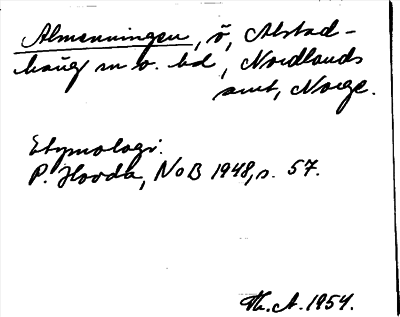 Almenningen, ö, Alstad-
haug sn o. hd, Nordlands
amt, Norge.
Etymologi:
P. Hovda, NoB 1948, s. 57.
Th. A. 1954.